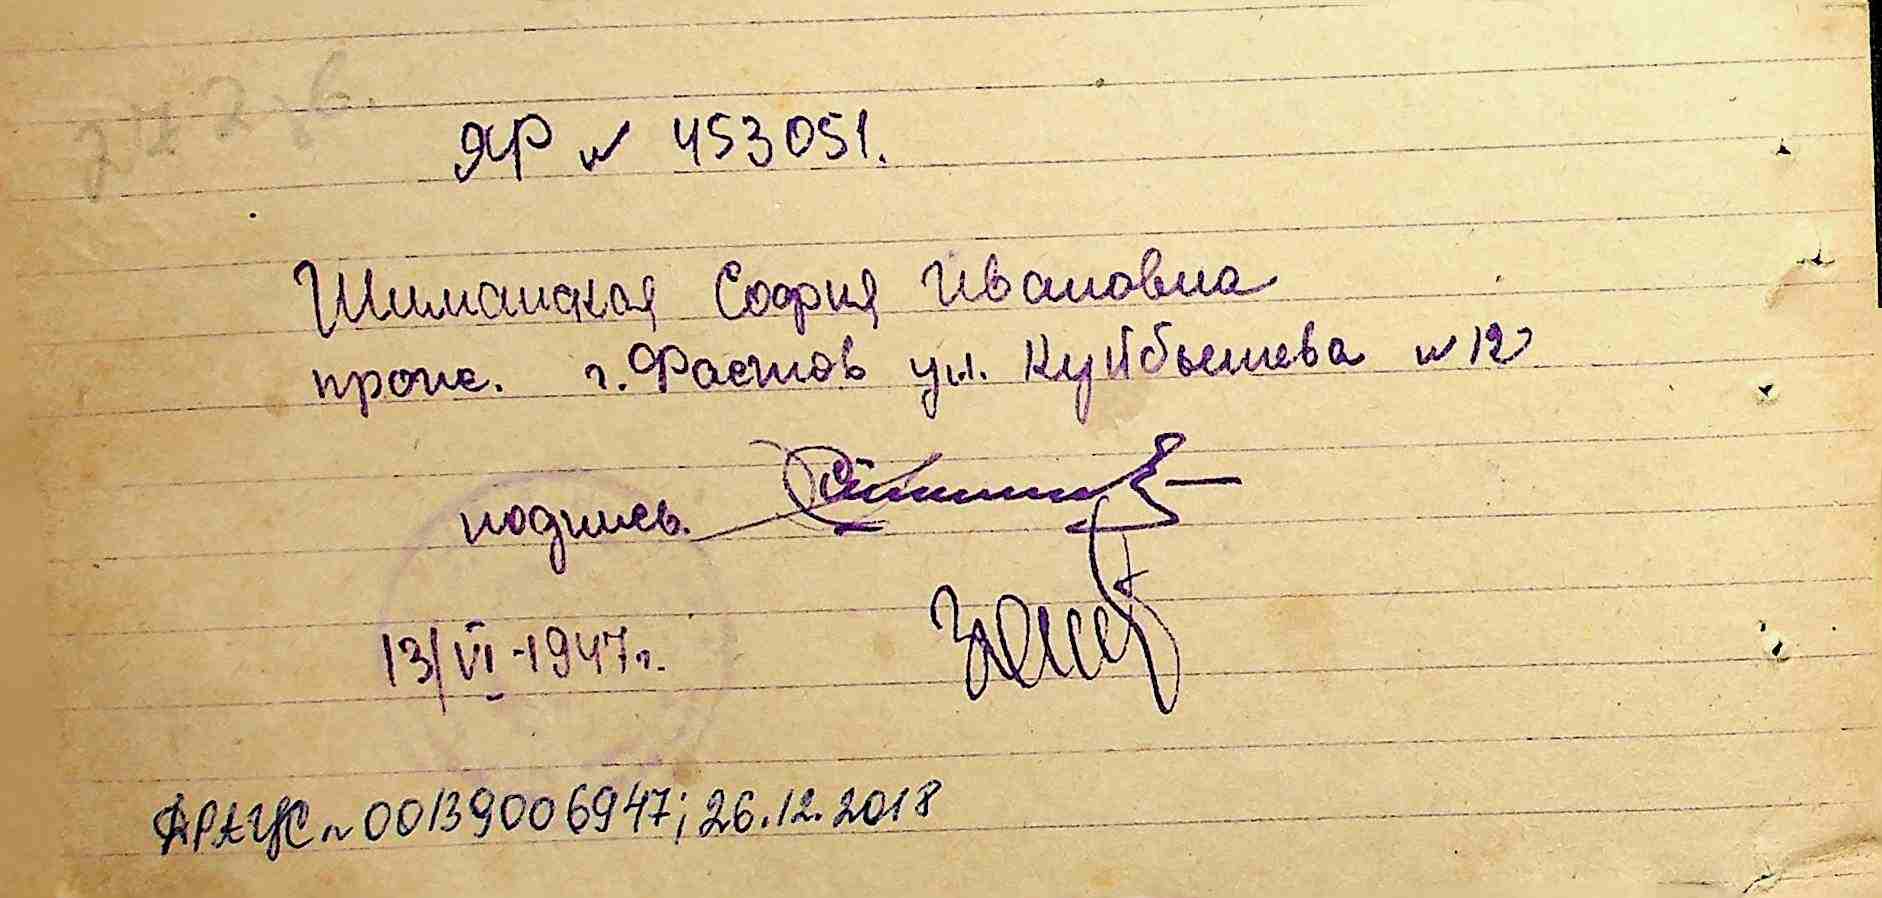 ЯР № 453051.
Шиманская София Ивановна
прож. г. Фастов ул. Куйбышева № 12
подпись.
13/VI-1947г.
ДРАЦС № 00139006947; 26.12.2018